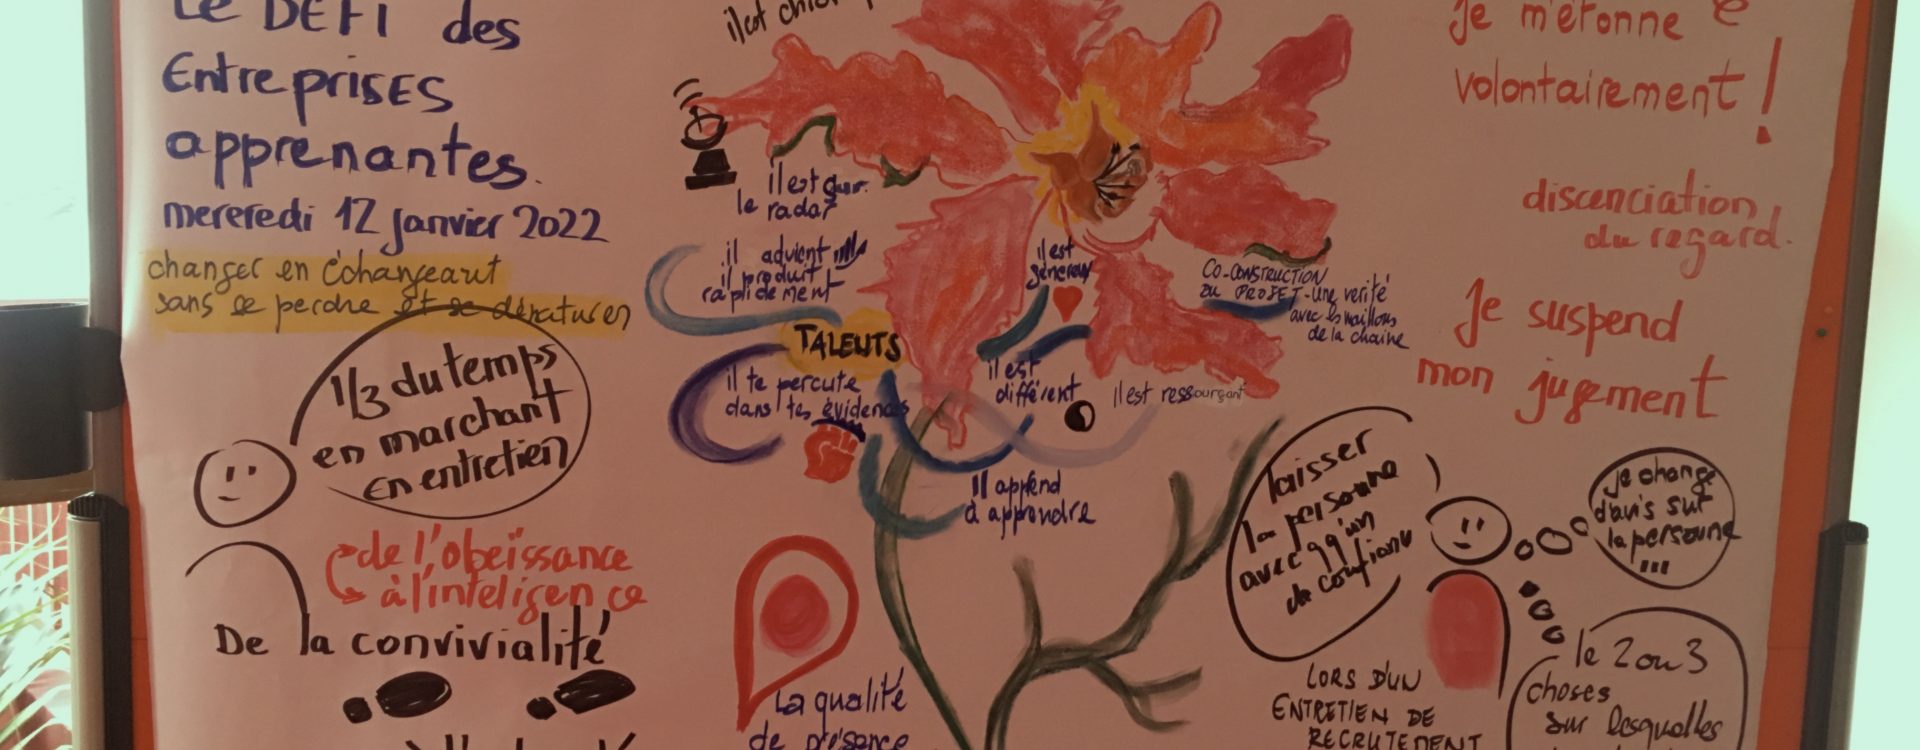 Le DÉFI des
EntreprisES
apprenantes.
mercredi 12 janvier 2022
changer en échangeant
sans se perdre et se dénaturer
1/3 du temps
en marchant
en entretien
de l'obéissance
à l'inteligence
De la convivialité
il est
il est sur
le radar
il advient
il produit
rapidement
TALENTS
il te percute
dans tes évidences
il est
généreux
il est
différent
il est ressourçant
Il apprend
à apprendre
CO-CONSTRUCTION
DU PROJET - Une verité
avec les maillons
de la chaîne
La qualité
de présence
Je m'étonne
volontairement !
discenciation
du regard.
Je suspend
mon jugement
laisser
la personne
avec qq'un
de confiance
je change
d'avis sur
la personne
...
LORS D'UN
ENTRETIEN DE
RECRUTEMENT
le 2 ou 3
choses
sur lesquelles